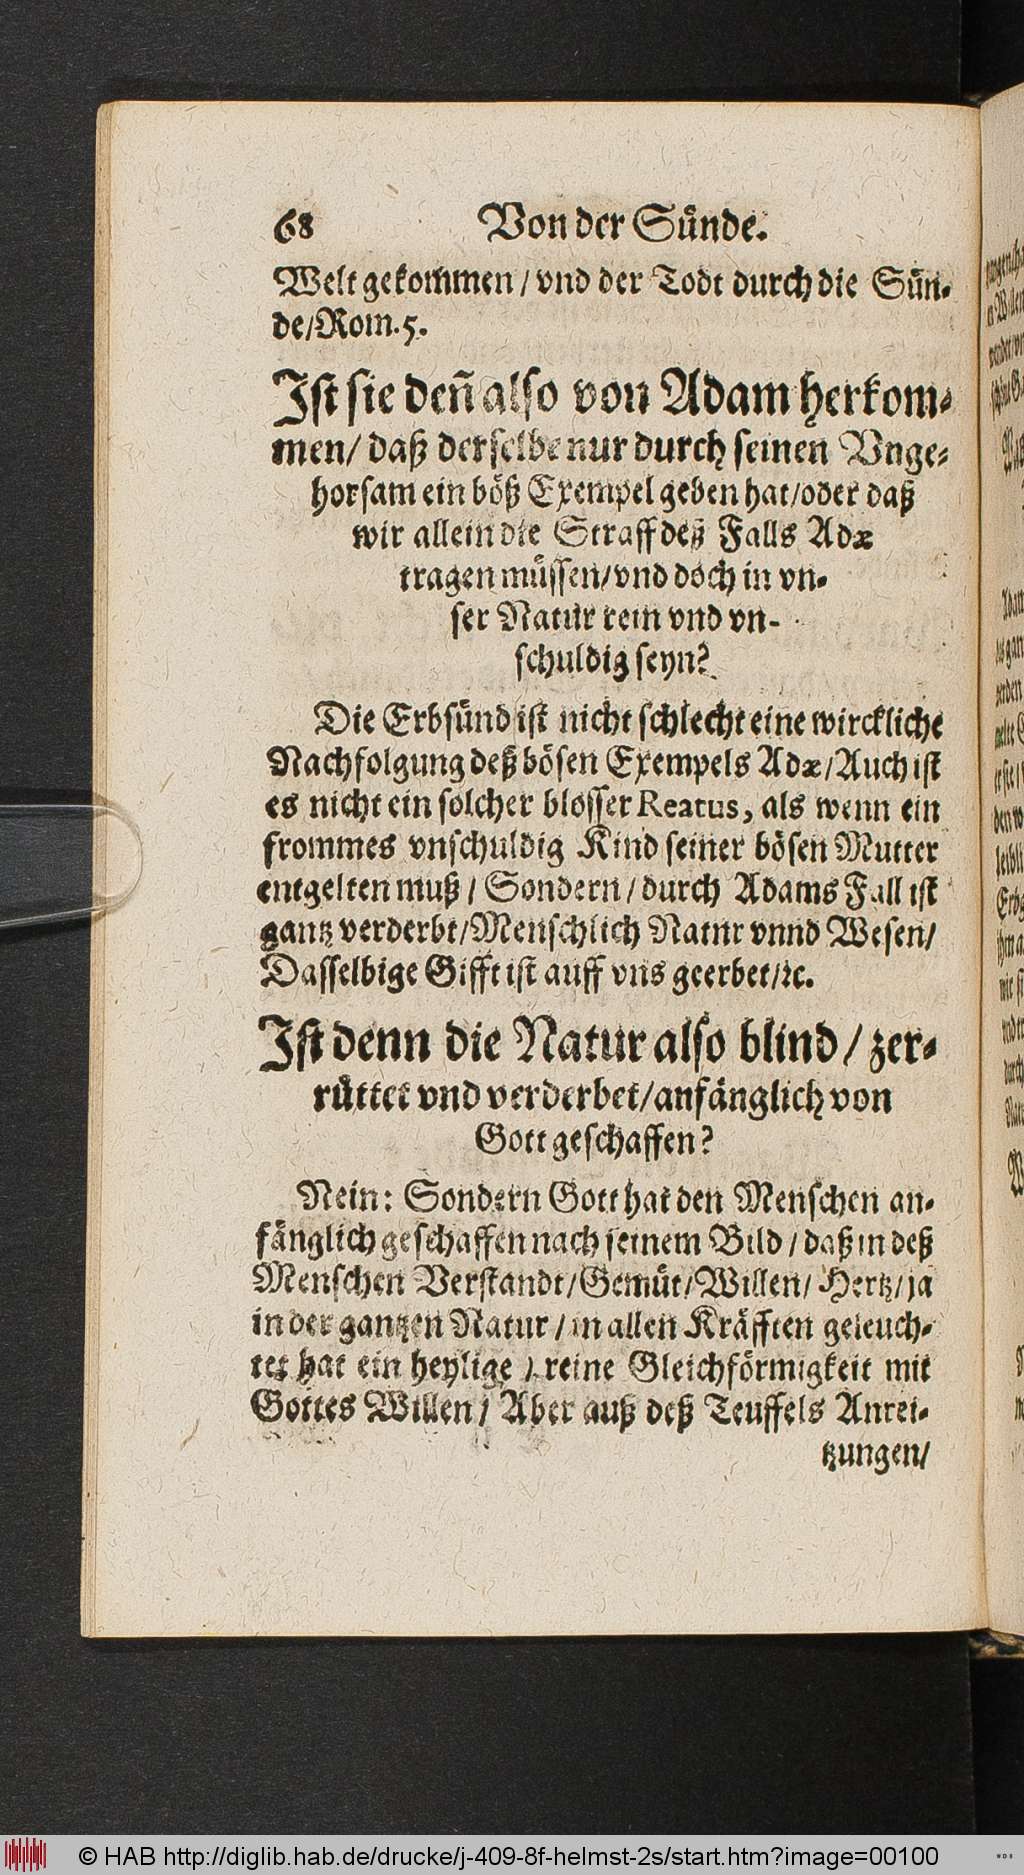 68 Von der Sünde.
Welt gekommen / vnd der Todt durch die Sün-
de/Rom.5.
Ist sie deñ also von Adam herkom-
men/ daß derselbe nur durch seinen Vnge-
horsam ein böß Exempel geben hat/oder daß
wir allein die Straff deß Falls Adæ
tragen müssen/vnd doch in vn-
ser Natur rein vnd vn-
schuldig seyn?
Die Erbsünd ist nicht schlecht eine wirckliche
Nachfolgung deß bösen Exempels Adæ/Auch ist
es nicht ein solcher blosser Reatus, als wenn ein
frommes vnschuldig Kind seiner bösen Mutter
entgelten muß / Sondern / durch Adams Fall ist
gantz verderbt/Menschlich Natur vnnd Wesen/
Dasselbige Gifft ist auff vns geerbet/ꝛc.
Ist denn die Natur also blind / zer-
rüttet vnd verderbet/anfänglich von
Gott geschaffen?
Nein: Sondern Gott hat den Menschen an-
fänglich geschaffen nach seinem Bild / daß in deß
Menschen Verstandt/Gemüt/Willen/ Hertz/ ja
in der gantzen Natur / in allen Kräfften geleuch-
tet hat ein heylige / reine Gleichförmigkeit mit
Gottes Willen / Aber auß deß Teuffels Anrei-
tzungen/
© HAB http://diglib.hab.de/drucke/j-409-8f-helmst-2s/start.htm?image=00100